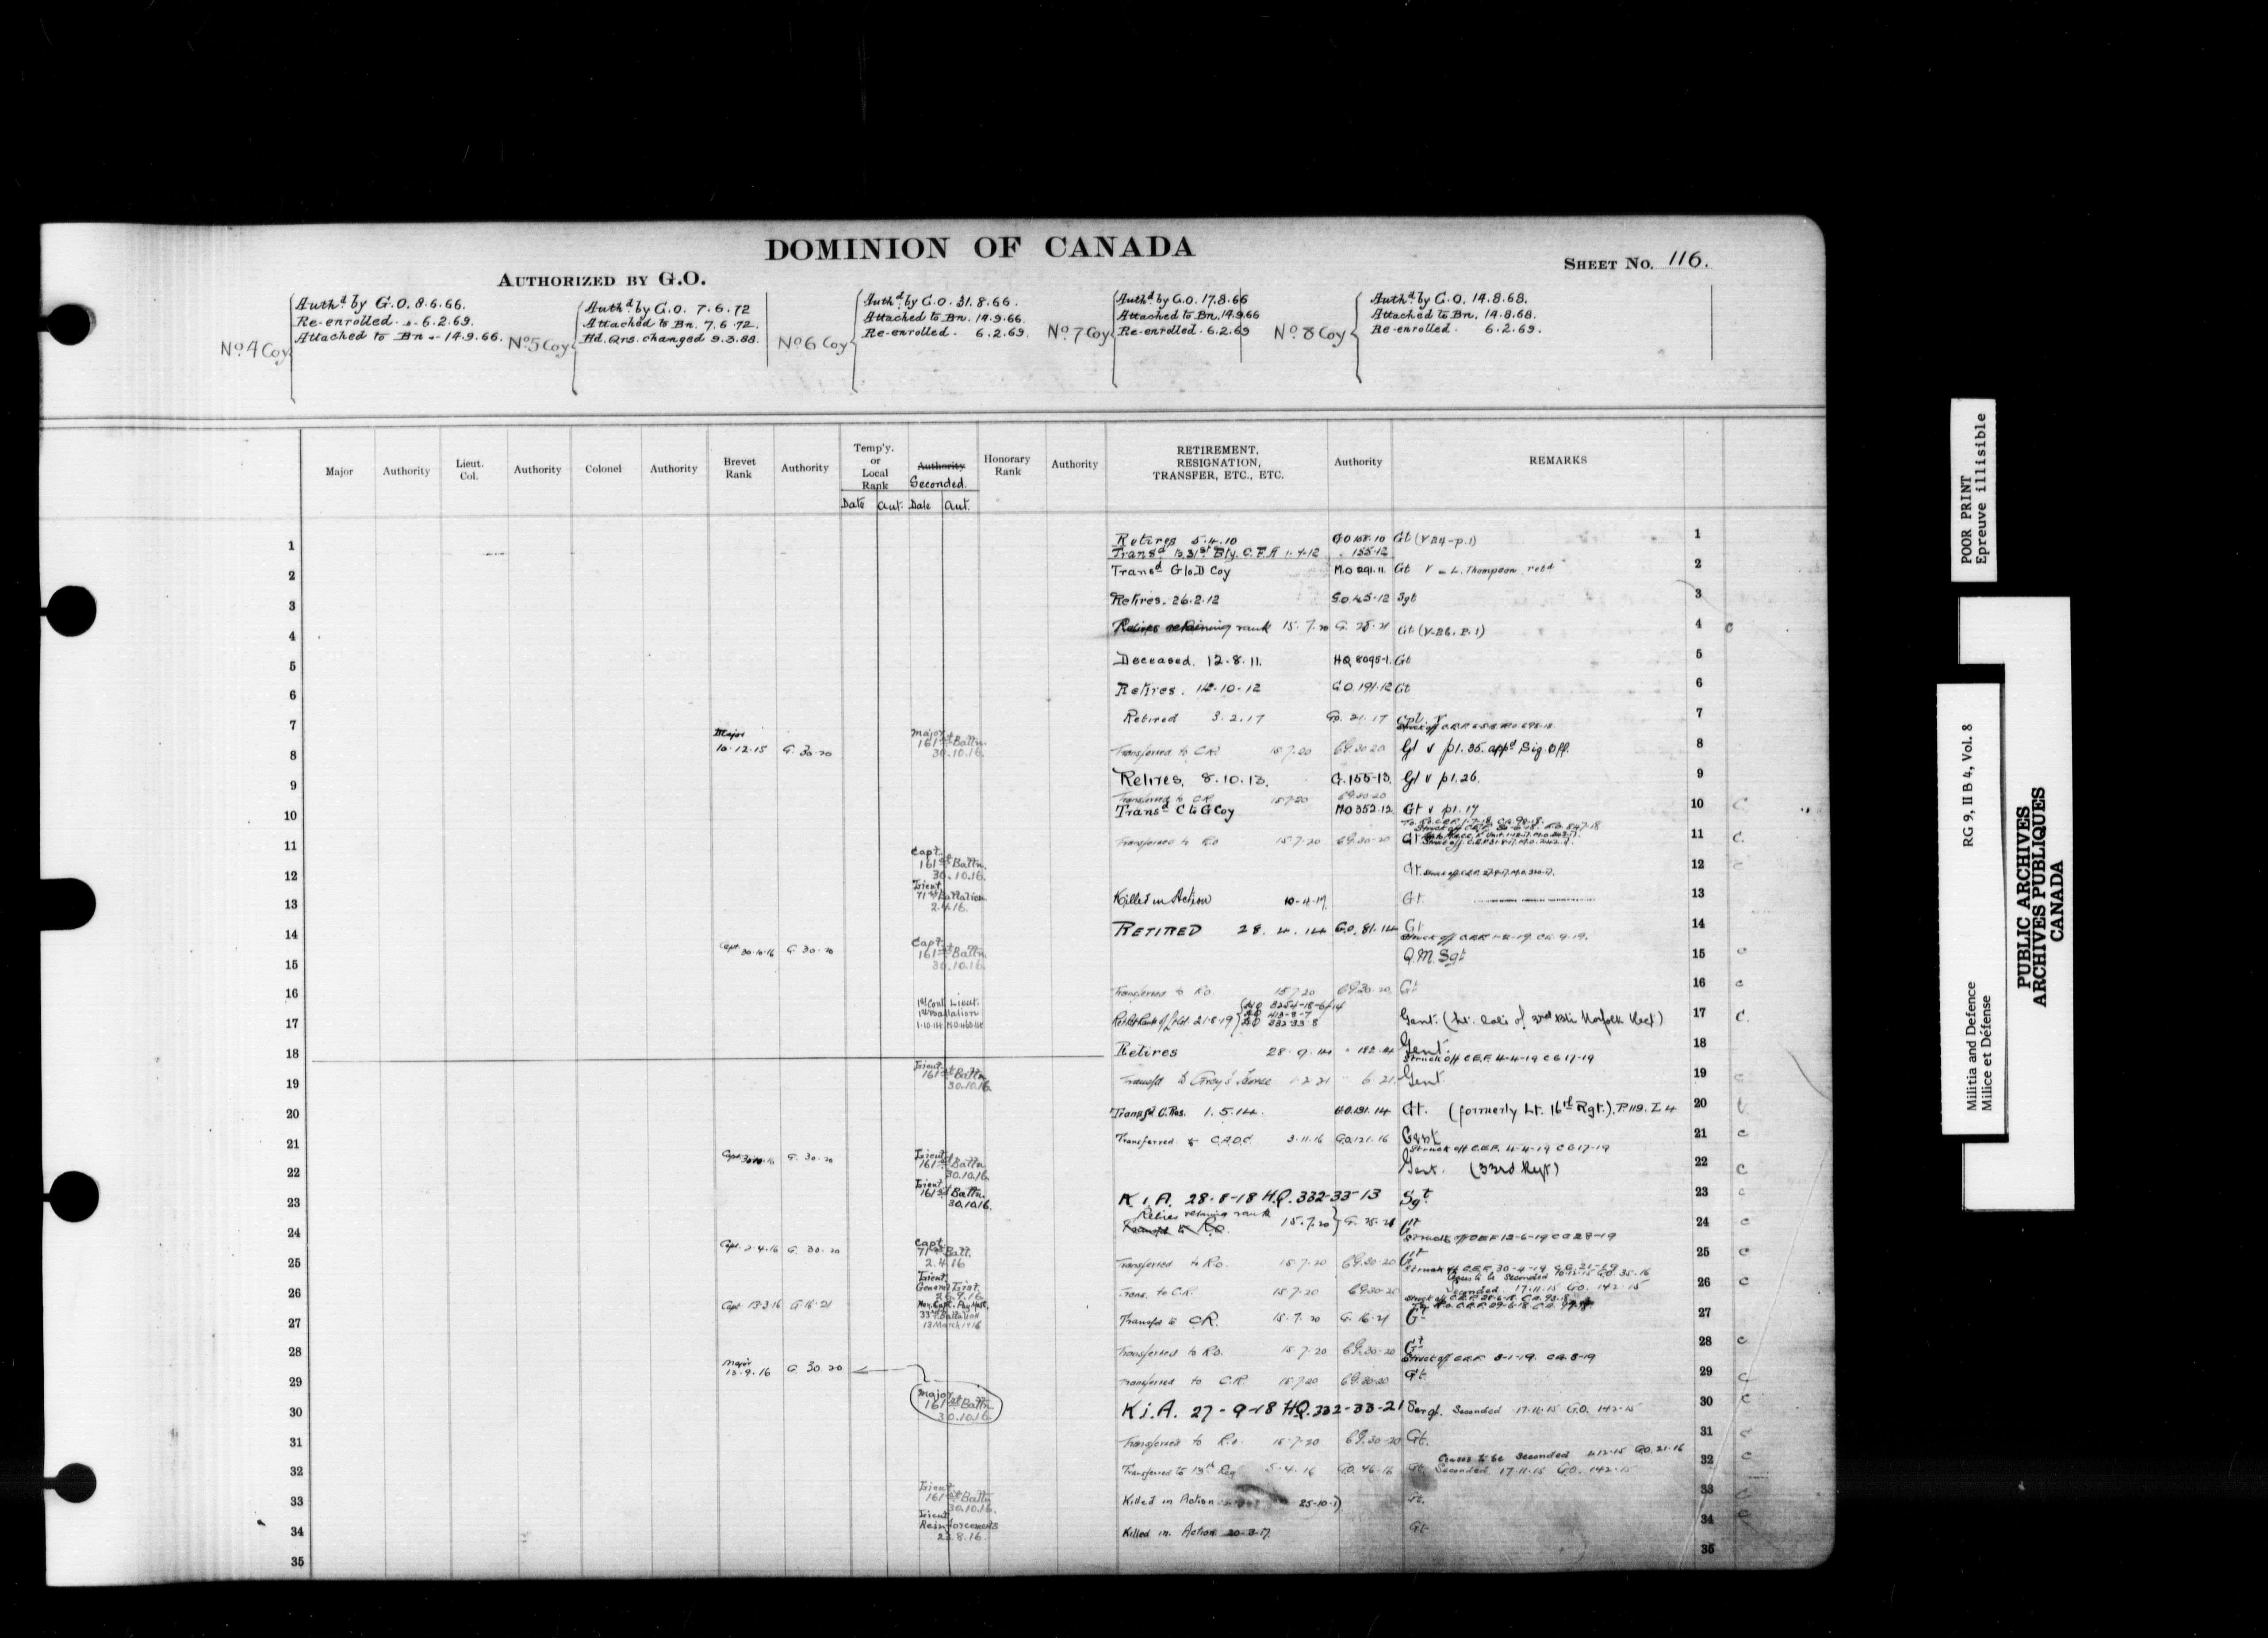 DOMINION OF CANADA
SHEET No. 116.
AUTHORIZED BY G.O.
No. 4 Coy
Authd. by G.O. 8.6.66.
Re-enrolled. 6.2.69.
Attached to Bn 14.9.66.
No. 5 Coy
Authd. by G.O. 7.6.72
Attached to Bn. 7.6.72.
Hd. Qrs. changed 9.3.88.
No. 6 Coy
Authd. by G.O. 31.8.66.
Attached to Bn. 14.9.66.
Re-enrolled. 6.2.69.
No. 7 Coy
Authd by G.O. 17.8.66
Attached to Bn. 14.9.66
Re-enrolled. 6.2.69
No. 8 Coy
Authd by G.O. 14.8.68.
Attached to Bn. 14.8.68.
Re-enrolled. 6.2.69.
Major
Authority
Lieut. Col.
Authority
Colonel
Authority
Brevet Rank
Authority
Temp'y. or Local Rank
Authority
Seconded.
Honorary Rank
Authority
RETIREMENT, RESIGNATION, TRANSFER, ETC., ETC.
Authority
REMARKS
Date Aut. Date Aut.
1 Retires 5.4.10 G.O 108.10 Gt (V B4-p.1) 1
Transd to 31st Bty. C.F.A 1.4.12 155.12
2 Transd G to D Coy M.O 291.11. Gt V L. Thompson retd 2
3 Retires. 26.2.12 G.O.45.12 Sgt 3
4 Retires retaining rank 15.7.20 G. 25.21 Gt (V-B6.P.1) 4 c
5 Deceased. 12.8.11. HQ 8095-1. Gt 5
6 Retires. 14-10-12 G.O.191.12 Gt 6
7 Retired 3.2.17 G. 21.17 Cpl. V 7
8 Major 10.12.15 G. 30.20 Major 161st Battn. 30.10.16. Transferred to C.R. 15.7.20 G. 30-20 Gt v p1.35. appd Sig. Off. 8
9 Retires. 8.10.13. G.155-13. Gt v p1.26. 9
Transferred to C.R. 15.7.20 G. 30-20
10 Transd C to G Coy M.O 352.12 Gt v p1.17 10 C
11 Transferred to R.O 15.7.20 G. 30-20 Gt 11 C.
12 Capt. 161st Battn. 30.10.16. Gt. 12 c
13 Lieut. 71st Battalion 2.4.16. Killed in Action 10-4-17. Gt. 13
14 RETIRED 28.4.14 G.O. 81.14 Gt 14
15 Capt 30.10.16 G. 30.20 Capt. 161st Battn. 30.10.16. Q.M. Sgt 15 c
16 Transferred to R.O. 15.7.20 G. 30.20 Gt 16 c
17 1st Cont. Lieut. 1st Battalion 21.8.19 Gent. (Lt. late of 3rd Bn Norfolk Regt) 17 C.
18 Retires 28.9.14 182.14 Gent. 18
Struck off C.E.F. 4-4-19 C.E 17-19
19 Lieut. 161st Battn. 30.10.16. Transfd to Grey's Horse 1.2.21 6.21. Gent. 19 c
20 Transfd C. Res. 1.5.14. G.O.131.14 Gt. (formerly Lt. 16th Rgt.). P.119. L 4 20
21 Transferred to C.A.D.C. 3.11.16 G.O.121.16 Gent 21 c
Struck off C.E.F. 4-4-19 C.E 17-19
22 Capt 30.10.16 G. 30.20 Lieut. 161st Battn 30.10.16. Gent. (33rd Regt) 22 c
23 Lieut. 161st Battn. 30.10.16. K.i.A. 28-8-18 H.Q. 332-33-13 Sgt. 23 c
24 Retires retaining rank 15.7.20 G. 25.21 Gt 24 c
Transfd to R.O.
Struck off C.E.F. 12-6-19 C.E 28-19
25 Capt. 2.4.16 G. 30.20 Capt. 71st Batt. 2.4.16 Transferred to R.O. 15.7.20 G. 30.20 Gt 25 c
Struck off C.E.F. 30-4-19 C.E. 21-19
26 Lieut. General List. 26.9.16. Trans. to C.R. 15.7.20 G. 30-20 Seconded. 17.11.15 G.O. 142.15 26 c
27 Capt 13.3.16 G. 16.21 Hon. Capt. Paymast. 33rd Battalion 13 March 1916 Transfd to C.R. 15.7.20 G. 16.21 Gt 27
28 Transferred to R.O. 15.7.20 G. 30-20 Gt 28 c
Struck off C.E.F. 3-1-19. C.E. 3-19
29 Major 13.9.16 G. 30.20 Transferred to C.R. 15.7.20 G. 30.20 Gt. 29 c
30 Major 161st Battn 30.10.16. K.i.A. 27-9-18 HQ. 332-33-21 Sergt. Seconded 17.11.15 G.O. 142.15 30 c
31 Transferred to R.O. 15.7.20 G. 30-20 Gt. 31 c
Ceases to be Seconded 4.12.15 G.O. 21.16
32 Transferred to 13th Reg 5.4.16 G.O. 46.16 Gt. Seconded 17.11.15 G.O. 142.15 32 c
33 Lieut. 161st Battn 30.10.16. Killed in Action 25-10-17 Gt. 33 c
34 Lieut. Reinforcements 22.8.16. Killed in Action 20-8-17. Gt. 34 c
35 35
POOR PRINT
Epreuve illisible
Militia and Defence
Milice et Défense
RG 9, II B 4, Vol. 8
PUBLIC ARCHIVES
ARCHIVES PUBLIQUES
CANADA